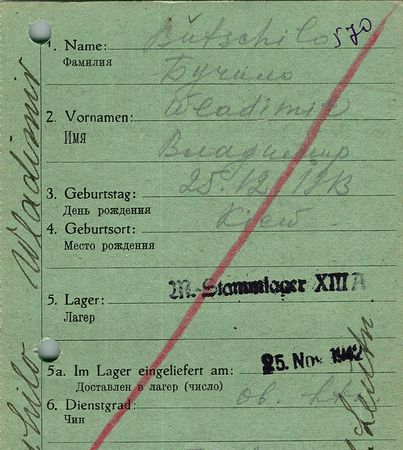 1. Name: Butschilo 570
Фамилия Бучило
2. Vornamen: Wladimir
Имя Владимир
3. Geburtstag: 25.12.1913
День рождения
4. Geburtsort: Kiew
Место рождения
5. Lager: M.-Stammlager XIII A
Лагер
5a. Im Lager eingeliefert am: 25. Nov. 1942
Доставлен в лагер (число)
6. Dienstgrad: Ob. Lt.
Чин
Wladimir